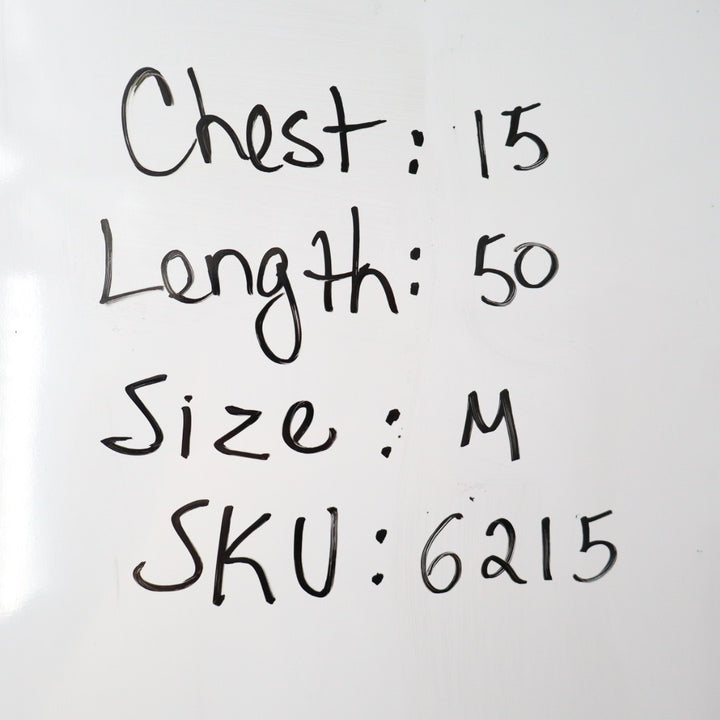 Chest: 15
Length: 50
Size: M
SKU: 6215